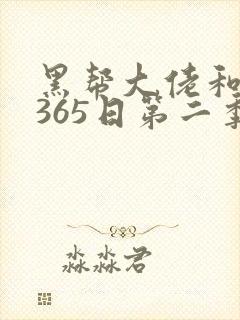 黑帮大佬和
365日第二季
淼淼君